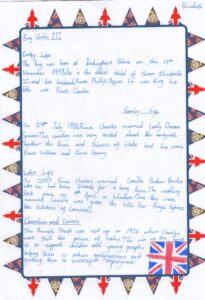 Elizabeth
King Charles III
Early Life
The King was born at Buckingham Palace on the 14th
November 1948. He is the eldest child of Queen Elizabeth
II and her husband, Prince Philip. Before he was King his
title was Prince Charles.
Family Life
On 29th July 1981, Prince Charles married Lady Diana
Spencer. This wedding was very
Together the Prince and Princess of Wales had two sons
Prince William and Prince Harry.
Later Life
In 2005 Prince Charles married Camilla Parker Bowles
who he had been friends for a long time. The wedding
took place on in Windsor. Once they were
married Camilla was given the title Her Royal Highness
the Duchess of Cornwall.
Charities and Causes
The Prince's Trust was set up in 1976 when Charles
was still the prince of Wales. The aim of the trust
is to support vulnerable young people by
helping them to achieve qualifications and
guiding them to successful employment.